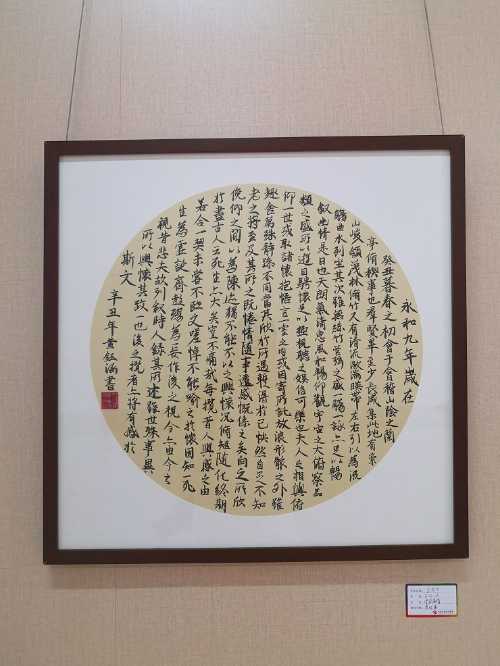 永和九年歲在
癸丑暮春之初會于會稽山陰之蘭
亭脩稧事也群賢畢至少長咸集此地有崇
山峻領茂林脩竹又有清流激湍暎帶左右引以為流
觴曲水列坐其次雖無絲竹管弦之盛一觴一詠亦足以暢
敘幽情是日也天朗氣清惠風和暢仰觀宇宙之大俯察品
類之盛所以遊目騁懷足以極視聽之娛信可樂也夫人之相與俯
仰一世或取諸懷抱悟言一室之內或因寄所託放浪形骸之外雖
趣舍萬殊靜躁不同當其欣於所遇暫得於己怏然自足不知
老之將至及其所之既惓情隨事遷感慨係之矣向之所欣
俛仰之間以為陳迹猶不能不以之興懷況脩短隨化終期
於盡古人云死生亦大矣豈不痛哉每攬昔人興感之由
若合一契未嘗不臨文嗟悼不能喻之於懷固知一死
生為虛誕齊彭殤為妄作後之視今亦由今之
視昔悲夫故列敘時人錄其所述雖世殊事異
所以興懷其致一也後之攬者亦將有感於
斯文 辛丑年黃鈺涵書